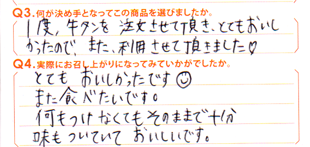 Q3.何が決め手となってこの商品を選びましたか。
1度，牛タンを 注文させて頂き、とてもおいし
かったので、また、利用させて頂きました♡
Q4.実際にお召し上がりになってみていかがでしたか。
とても おいしかったです☺
また食べたいです。
何もつけなくてもそのままで十分
味もついていて おいしいです。